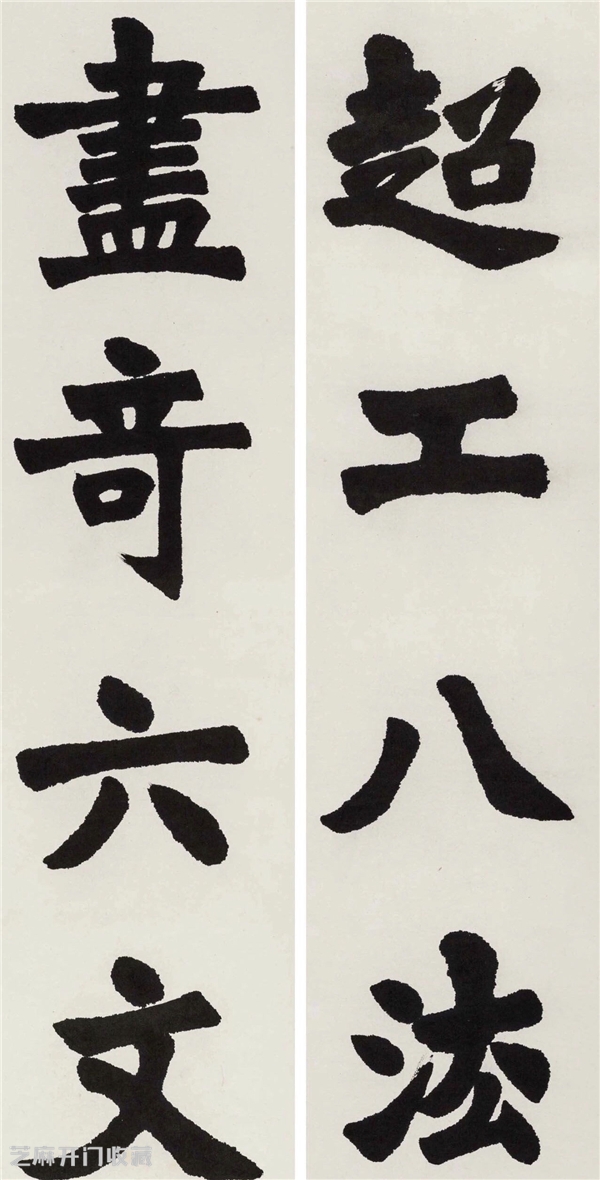 超工八法
盡奇六文
芝麻开门收藏